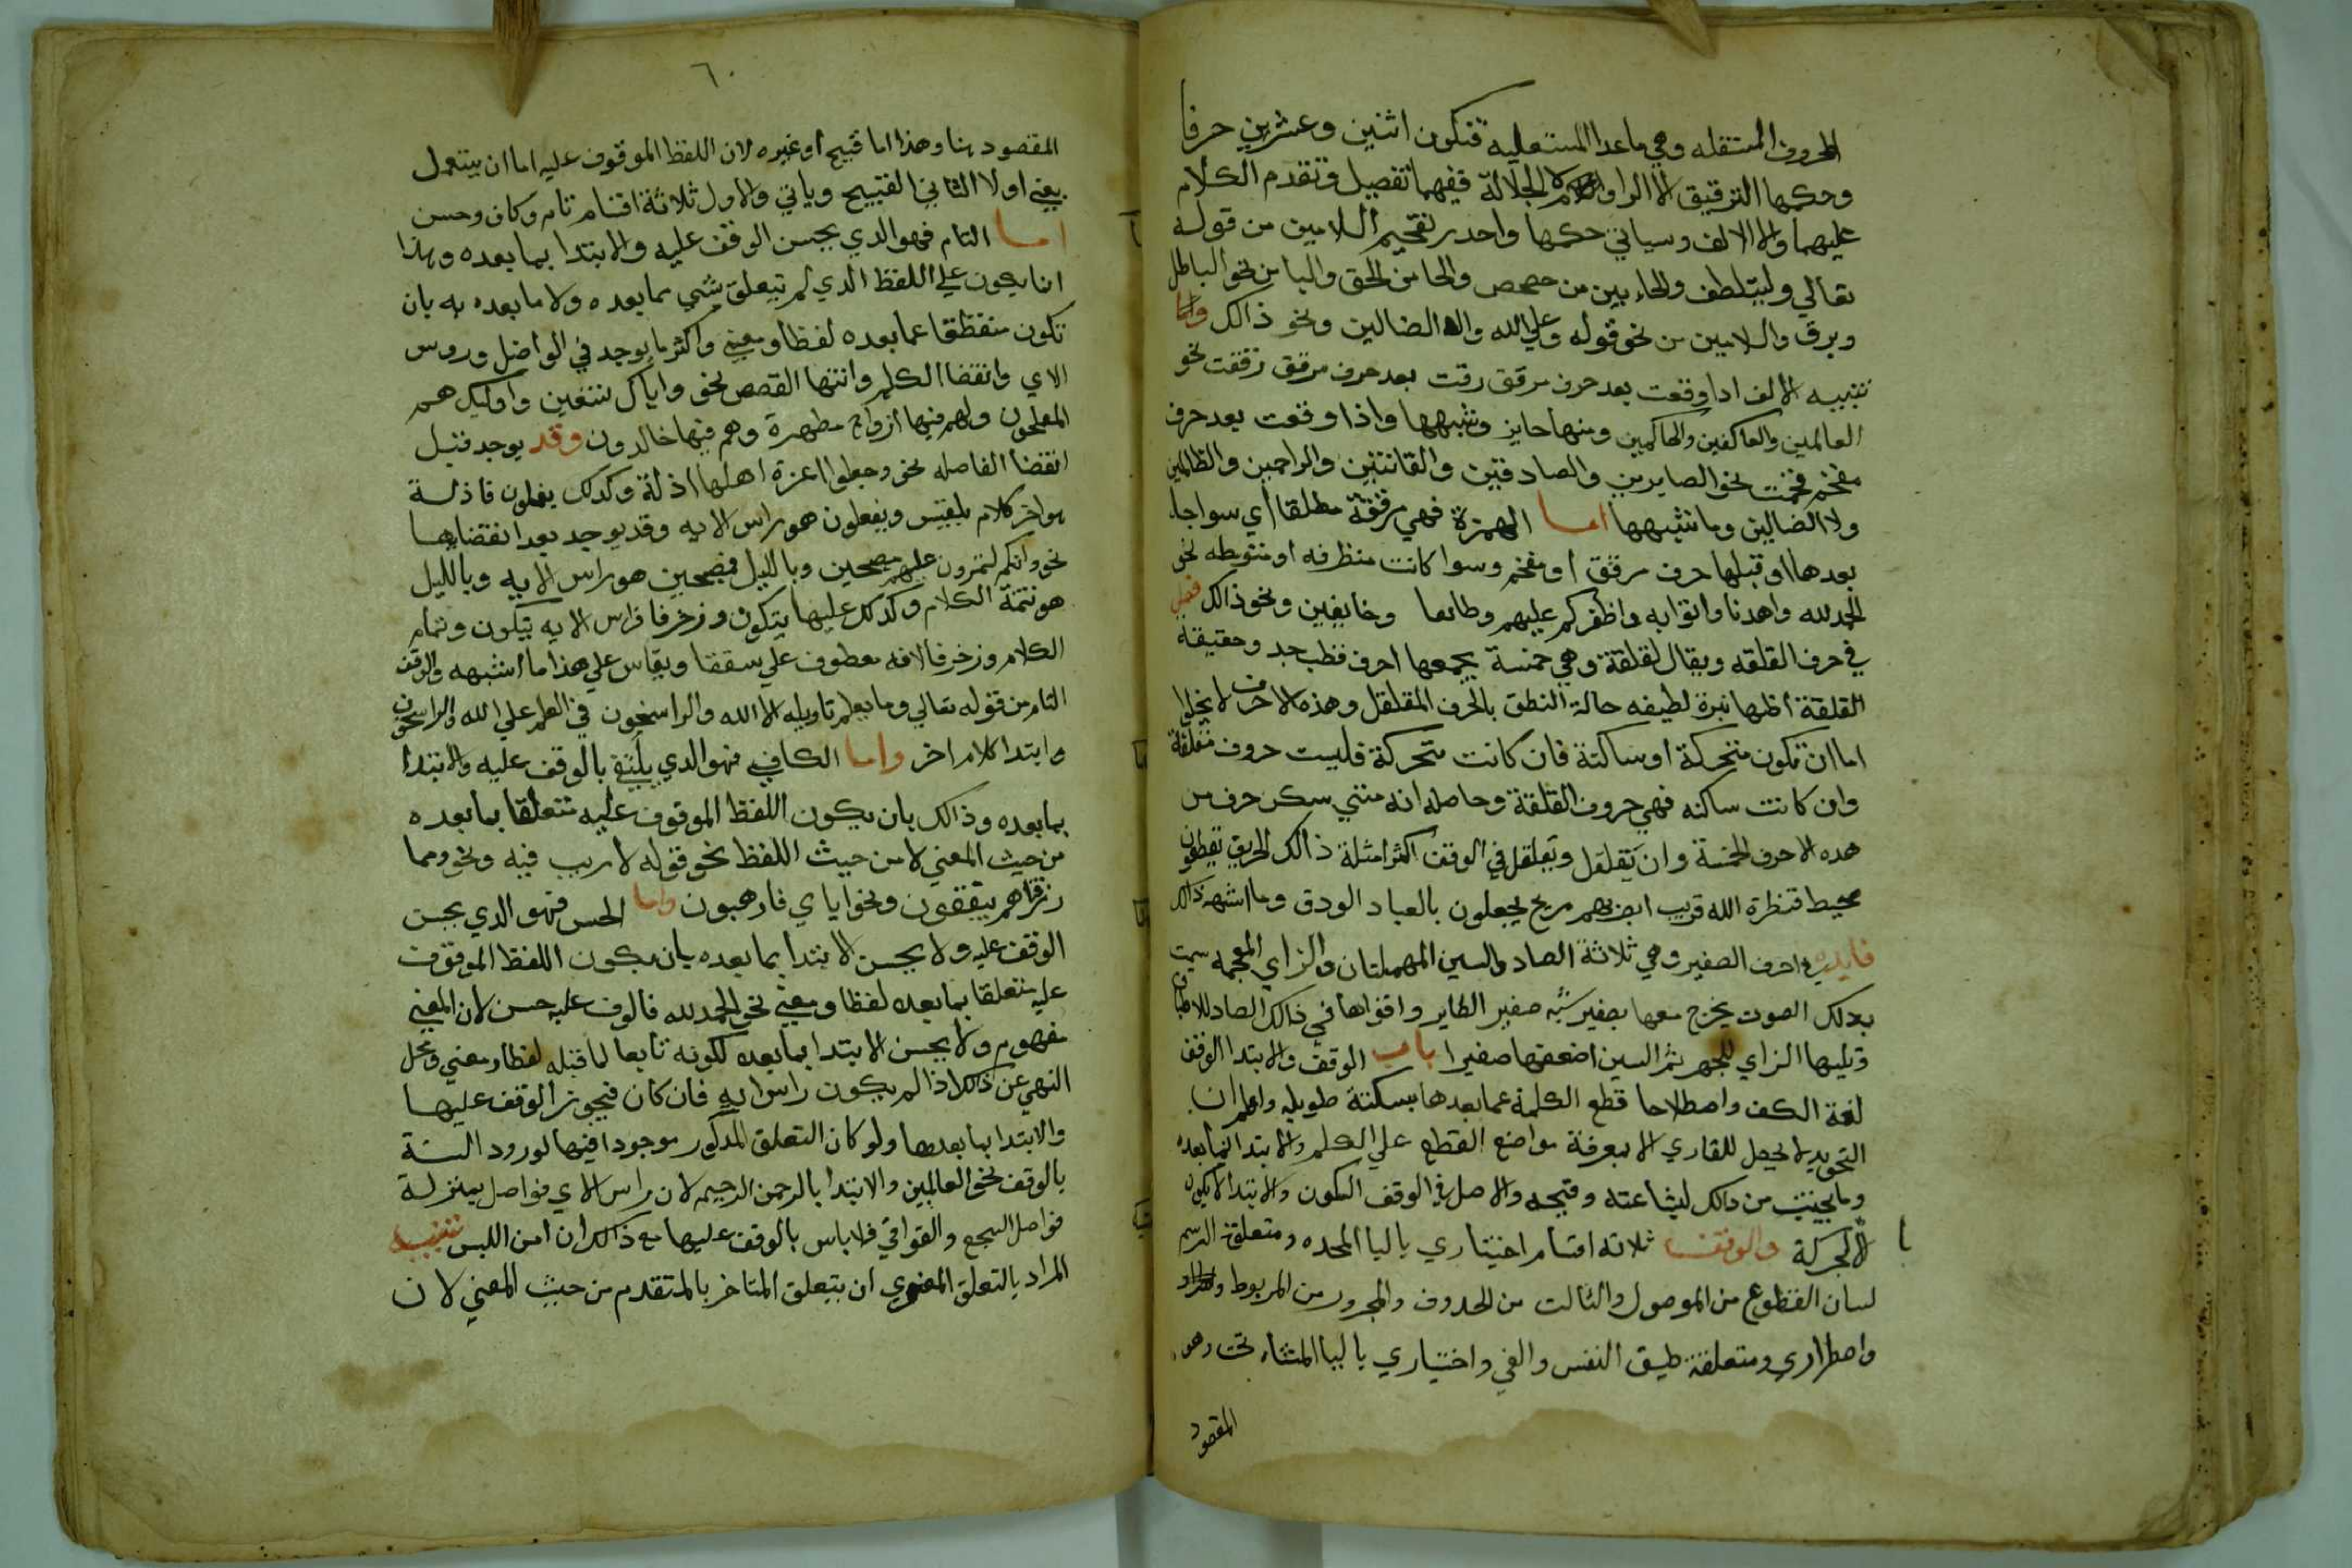 الحروف المستفله وهي ماعدا المستعليه فتكون اثنين وعشرين حرفا
وحكمها الترقيق الا الرا ولام الجلالة ففيهما تفصيل وتقدم الكلام
عليهما والا الالف وسياتي حكمها واحذر تفخيم اللامين من قوله
تعالي وليتلطف والحاءين من حصحص والحا من الحق والبا من نحو الباطل
وبرق واللامين من نحو قوله وعلي الله ولا الضالين ونحو ذالك واما
تنبيه الالف اذا وقعت بعد حرف مرقق رقت بعد حرف مرقق رققت نحو
العالمين والعاكفين والحاكمين ومنها جايز وشبهها واذا وقعت بعد حرف
مفخم فخمت نحو الصابرين والصادقين والقانتين والراحمين والظالمين
ولا الضالين وما شبهها اما الهمزة فهي مرققة مطلقا اي سوا جا
بعدها او قبلها حرف مرقق او مفخم وسوا كانت متطرفه او متوسطه نحو
الحمد لله واهدنا واتوا به واظفركم عليهم وطائعا وخايفين ونحو ذالك فصل
في حرف القلقه ويقال لقلقة وهي خمسة يجمعها احرف قطب جد وحقيقة
القلقة انها نبرة لطيفه حالة النطق بالحرف المقلقل وهذه الاحرف لا يخلوا
اما ان تكون متحركة او ساكنة فان كانت متحركة فليست حروف مقلقلة
وان كانت ساكنه فهي حروف القلقة وحاصله انه متي سكن حرف من
هده الاحرف الخمسة وان يتقلقل وتقلقل في الوقف اكثر امثلة ذالك الحريق يقطعون
محيط فنظرة الله قريب ابصرهم مريج يجعلون بالعباد الودق وما اشبه ذالك
فايده في احرف الصفير وهي ثلاثة الصاد والسين المهملتان والزاي المعجمه سميت
بدلك الصوت يخرج معها بصفير شبه صفير الطاير واقواها في ذالك الصاد للاطباق
وتليها الزاي للجهر ثم السين اضعفها صفيرا باب الوقف والابتدا الوقف
لغة الكف واصطلاحا قطع الكلمة عما بعدها بسكتة طويله واعلم ان
التجويد لا يحصل للقاري الا بمعرفة مواضع القطع علي الكلم والابتدا لما بعده
وما يجتنب من دالك لبشاعته وقبحه والاصل في الوقف السكون والابتدا لا يكون
الا بحركة والوقف ثلاثه اقسام اختباري بالبا الموحده ومتعلقه الرسم
لبيان المقطوع من الموصول والثالت من المحدوف والمجرور من المربوط
واصطراري ومتعلقه ضيق النفس والعي واختياري باليا المثناه تحت وهو
المقصود
٦٠
المقصود هنا وهذا اما قبيح او غيره لان اللفظ الموقوف عليه اما ان يستعمل
يعني اولا الثاني القبيح وياتي والاول ثلاثة اقسام تام وكاف وحسن
اما التام فهو الدي يحسن الوقف عليه والابتدا بما بعده وهذا
انما يكون علي اللفظ الدي لم يتعلق بشي مما بعده ولا ما بعده به بان
تكون منقطعا عما بعده لفظا ومعني واكثر ما يوجد في الواصل وروس
الاي وانقضا الكلم وانتها القصص نحو واياك نستعين واوليك هم
المفلحون ولهم فيها ازواج مطهرة وهم فيها خالدون وقد يوجد قبل
انقضا الفاصله نحو وجعلوا اعزة اهلها اذلة وكدلك يفعلون فاذلة
هو اخر كلام بلقيس ويفعلون هو راس الايه وقد يوجد بعد انقضايها
نحو وانكم لتمرون عليهم مصبحين وبالليل فمصبحين هو راس الايه وبالليل
هو تتمة الكلام وكدلك عليها يتكون وزخرفا فراس الايه يتكون وتمام
الكلام وزخرفا لانه معطوف علي سقفا ويقاس علي هذا ما اشبهه والوقف
التام من قوله تعالي وما يعلم تاويله الا الله والراسخون في العلم علي الله والراسخون
وابتدا كلام اخر واما الكافي فهو الدي يكتفي بالوقف عليه والابتدا
بما بعده وذالك بان يكون اللفظ الموقوف عليه متعلقا بما بعده
من حيث المعني لا من حيث اللفظ نحو قوله لا ريب فيه ونحو ومما
رزقناهم ينفقون ونحو اياي فارهبون واما الحسن فهو الدي يحسن
الوقف عليه ولا يحسن الابتدا بما بعده بان يكون اللفظ الموقوف
عليه متعلقا بما بعده لفظا ومعني نحو الحمد لله فالوقف عليه حسن لان المعني
مفهوم ولا يحسن الابتدا بما بعده لكونه تابعا لما قبله لفظا ومعني ومحل
النهي عن ذالك اذا لم يكون راس ايه فان كان فيجوز الوقف عليها
والابتدا بما بعدها ولو كان التعلق المدكور موجودا فيها لورود السنة
بالوقف نحو العالمين والابتدا بالرحمن الرحيم لان راس الاي فواصل بمنزلة
فواصل السجع والقوافي فلا باس بالوقف عليها مع ذالك ان امن اللبس تنبيه
المراد بالتعلق المعنوي ان يتعلق المتاخر بالمتقدم من حيث المعني لان